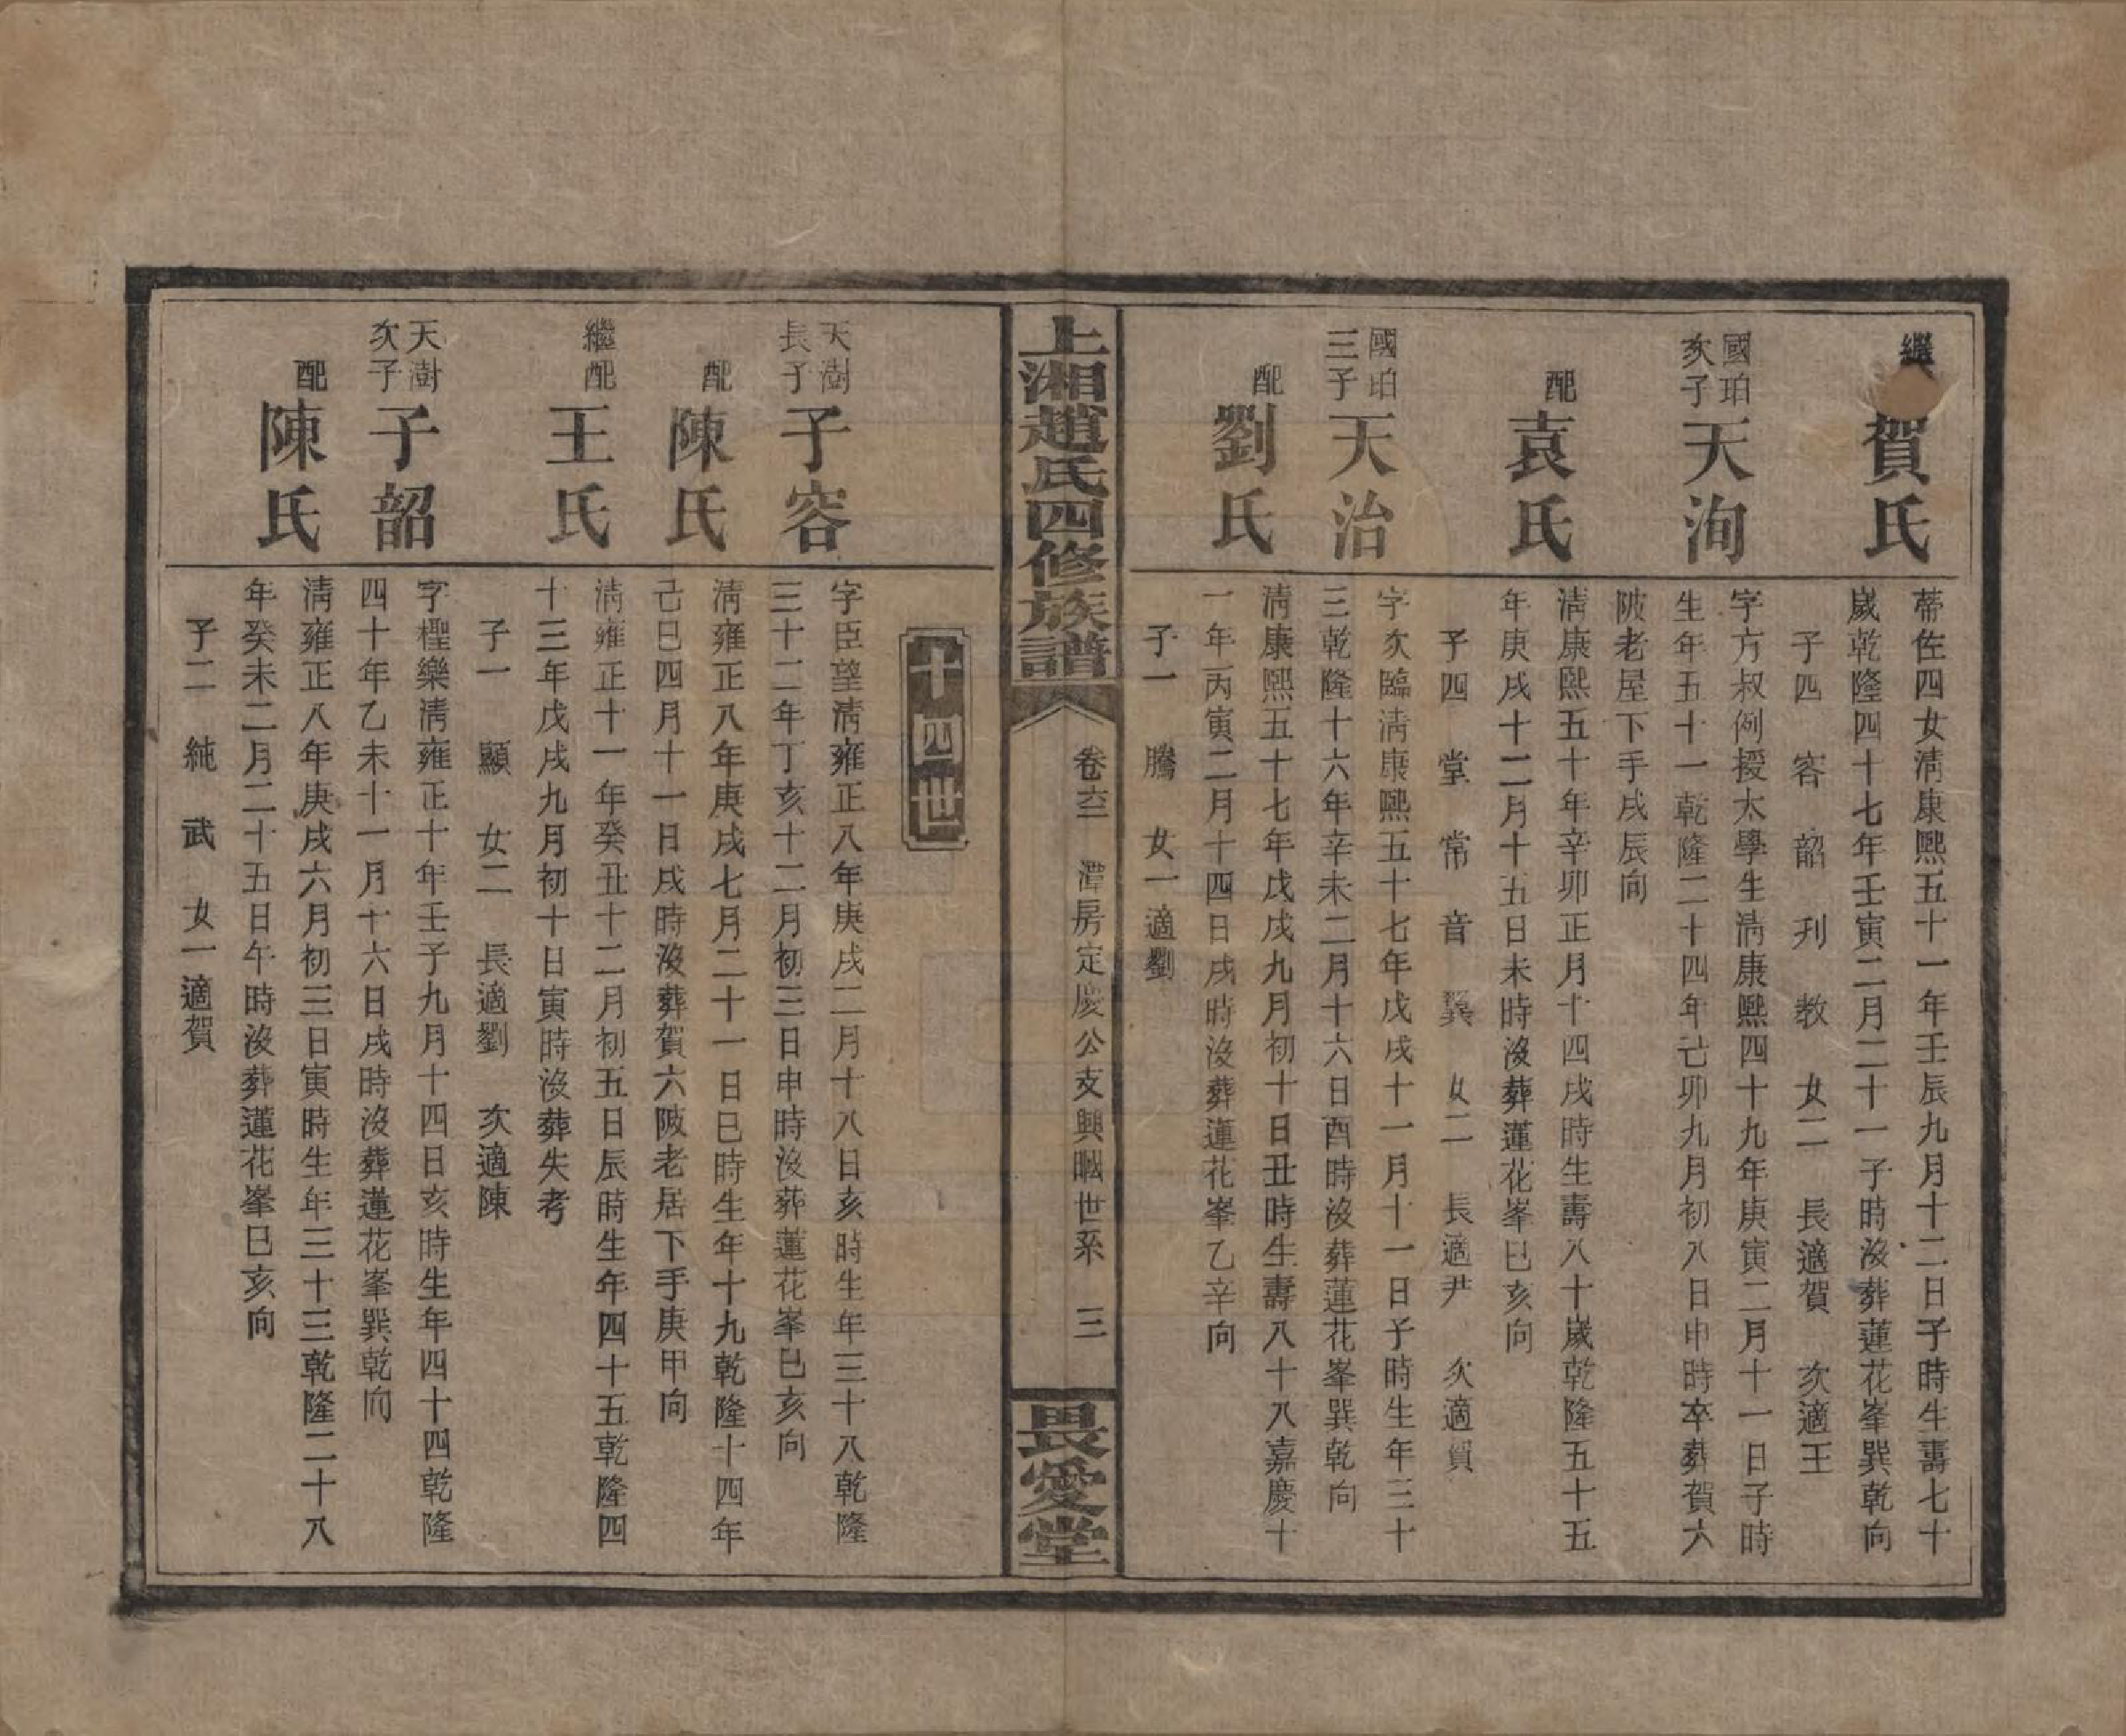 繼
賀氏
蒂佐四女淸康熙五十一年壬辰九月十二日子時生壽七十
歲乾隆四十七年壬寅二月二十一子時沒葬蓮花峯巽乾向
子四 容 韶 刋 教 女二 長適賀 次適王
國珀
次子
天洵
字方叔例授太學生淸康熙四十九年庚寅二月十一日子時
生年五十一乾隆二十四年己卯九月初八日申時卒葬賀六
陂老屋下手戌辰向
配
袁氏
淸康熙五十年辛卯正月十四戌時生壽八十歲乾隆五十五
年庚戌十二月十五日未時沒葬蓮花峯巳亥向
子四 堂 常 音 巽 女二 長適尹 次適賀
國珀
三子
天治
字次臨淸康熙五十七年戊戌十一月十一日子時生年三十
三乾隆十六年辛未二月十六日酉時沒葬蓮花峯巽乾向
配
劉氏
淸康熙五十七年戊戌九月初十日丑時生壽八十八嘉慶十
一年丙寅二月十四日戌時沒葬蓮花峯乙辛向
子一 騰 女一適劉
上湘趙氏四修族譜
卷六二 潭房定慶公支興㬏世系 三
畏愛堂
十四世
天澍
長子
子容
字臣望淸雍正八年庚戌二月十八日亥時生年三十八乾隆
三十二年丁亥十二月初三日申時沒葬蓮花峯巳亥向
配
陳氏
淸雍正八年庚戌七月二十一日巳時生年十九乾隆十四年
己巳四月十一日戌時沒葬賀六陂老居下手庚甲向
繼配
王氏
淸雍正十一年癸丑十二月初五日辰時生年四十五乾隆四
十三年戊戌九月初十日寅時沒葬失考
子一 顯 女二 長適劉 次適陳
天澍
次子
子韶
字檉樂淸雍正十年壬子九月十四日亥時生年四十四乾隆
四十年乙未十一月十六日戌時沒葬蓮花峯巽乾向
配
陳氏
淸雍正八年庚戌六月初三日寅時生年三十三乾隆二十八
年癸未二月二十五日午時沒葬蓮花峯巳亥向
子二 純 武 女一適賀